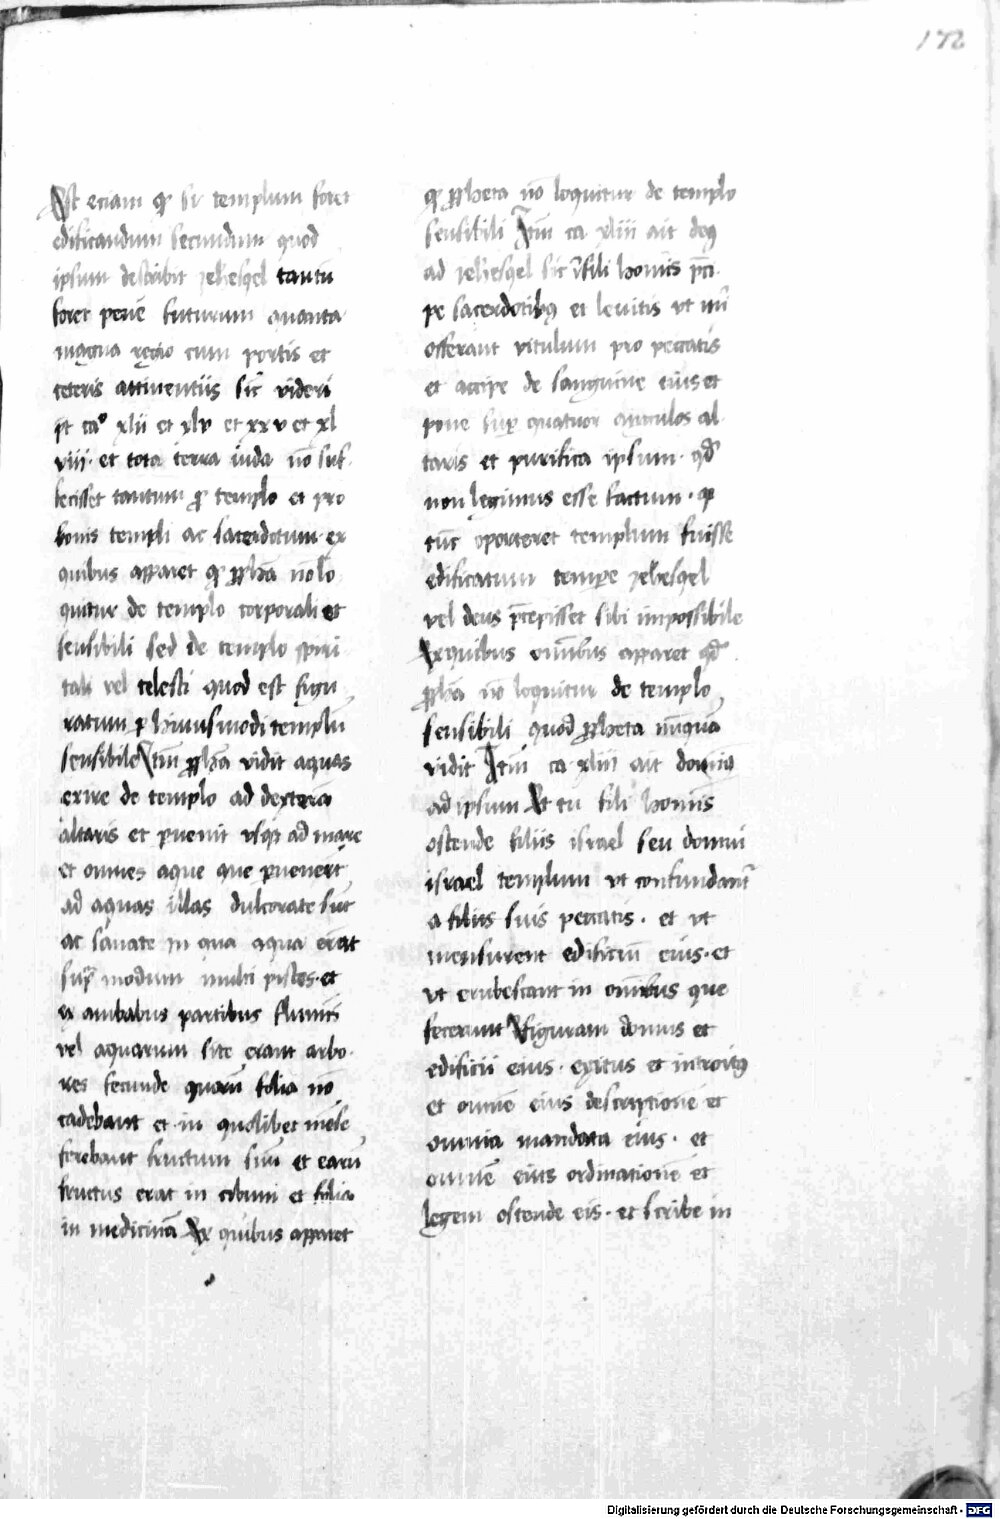 172
Est eciam qɔ si templum foret
edificandum secundum quod
ipsum describit jehesqel tantū
foret penē futurum quanta
magna regio cum portis et
ceteris attinentiis sic̄ videri
pt ca⁰ xlii et xlv et xxv et xl
viii· et tota terra iuda nō suf
fecisset tantum ꝓ templo et pro
bonis templi ac sacerdotum· ex
quibus apparet qɔ ꝓph̄a nō lo
quitur de templo corporali et
sensibili sed de templo spiri
tali vel celesti quod est figu
ratum ꝑ hiuusmodi templū
sensibile Itm̄ ꝓph̄a vidit aquas
exire de templo ad dexterā
altaris et ꝑuenit vsqꝫ ad mare
et omnes aque que ꝑuenert̄
ad aquas illas dulcorate sūt
ac sanate in qua aqua erāt
sup̄ modum multi pisces· et
ex ambabus partibus fluminis
vel aquarum site erant arbo·
res fecunde quarū folia nō
cadebant et in quolibet mēse
ferebant fructum suū et earū
fructus erat in cibum et folia
in medicinā Ex quibus apparet
qɔ ꝓpheta nō loquitur de templo
sensibili Itm̄ ca xliii ait deꝰ
ad jehesqel sic̄ fili hominis p̄ci
pe sacerdotibꝫ et leuitis vt mͥ
offerant vitulum pro peccatis
et accipe de sanguine eius et
pone suꝑ quatuor angulos al
taris et purifica ipsum· qd̄
non legimus esse factum· qɔ
tūc oporteret templum fuisse
edificatum tempore jehesqel
vel deus p̄cepisset sibi impossibile
Ex quibus omībus apparet qd̄
ꝓph̄a nō loquitur de templo
sensibili quod ꝓpheta nunquā
vidit Itm̄ ca xliii ait dominꝰ
ad ipsum Et tu fili hominis
ostende filiis israel seu domui
israel templum vt confundant̄
a filiis suis peccatis· et vt
mensurent edificiū eius· et
vt erubescant in omībus que
fecerunt Figuram domus et
edificii eius· exitus et introitꝰ
et omnē eius descriptionē et
omnia mandata eius· et
omnē eius ordinationē et
legem ostende eis· et scribe in
Digitalisierung gefördert durch die Deutsche Forschungsgemeinschaft - DFG